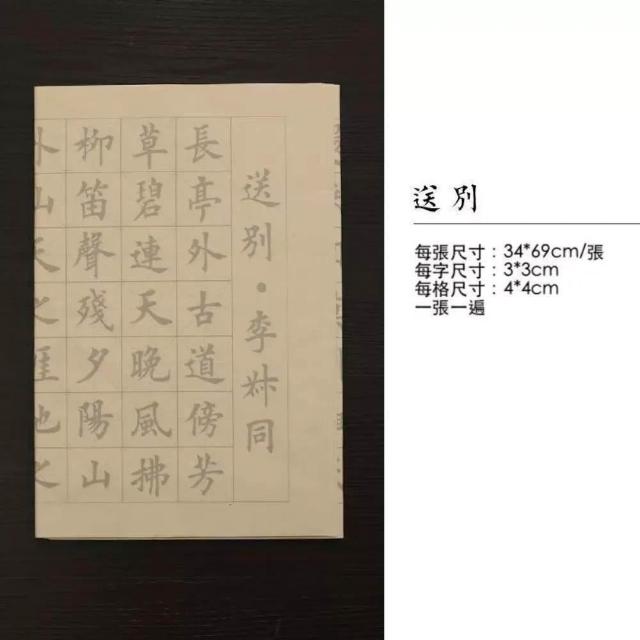 送別•李叔同
長亭外古道傍芳
草碧連天晚風拂
柳笛聲殘夕陽山
外山天之涯地之
送別
每張尺寸：34*69cm/張
每字尺寸：3*3cm
每格尺寸：4*4cm
一張一遍